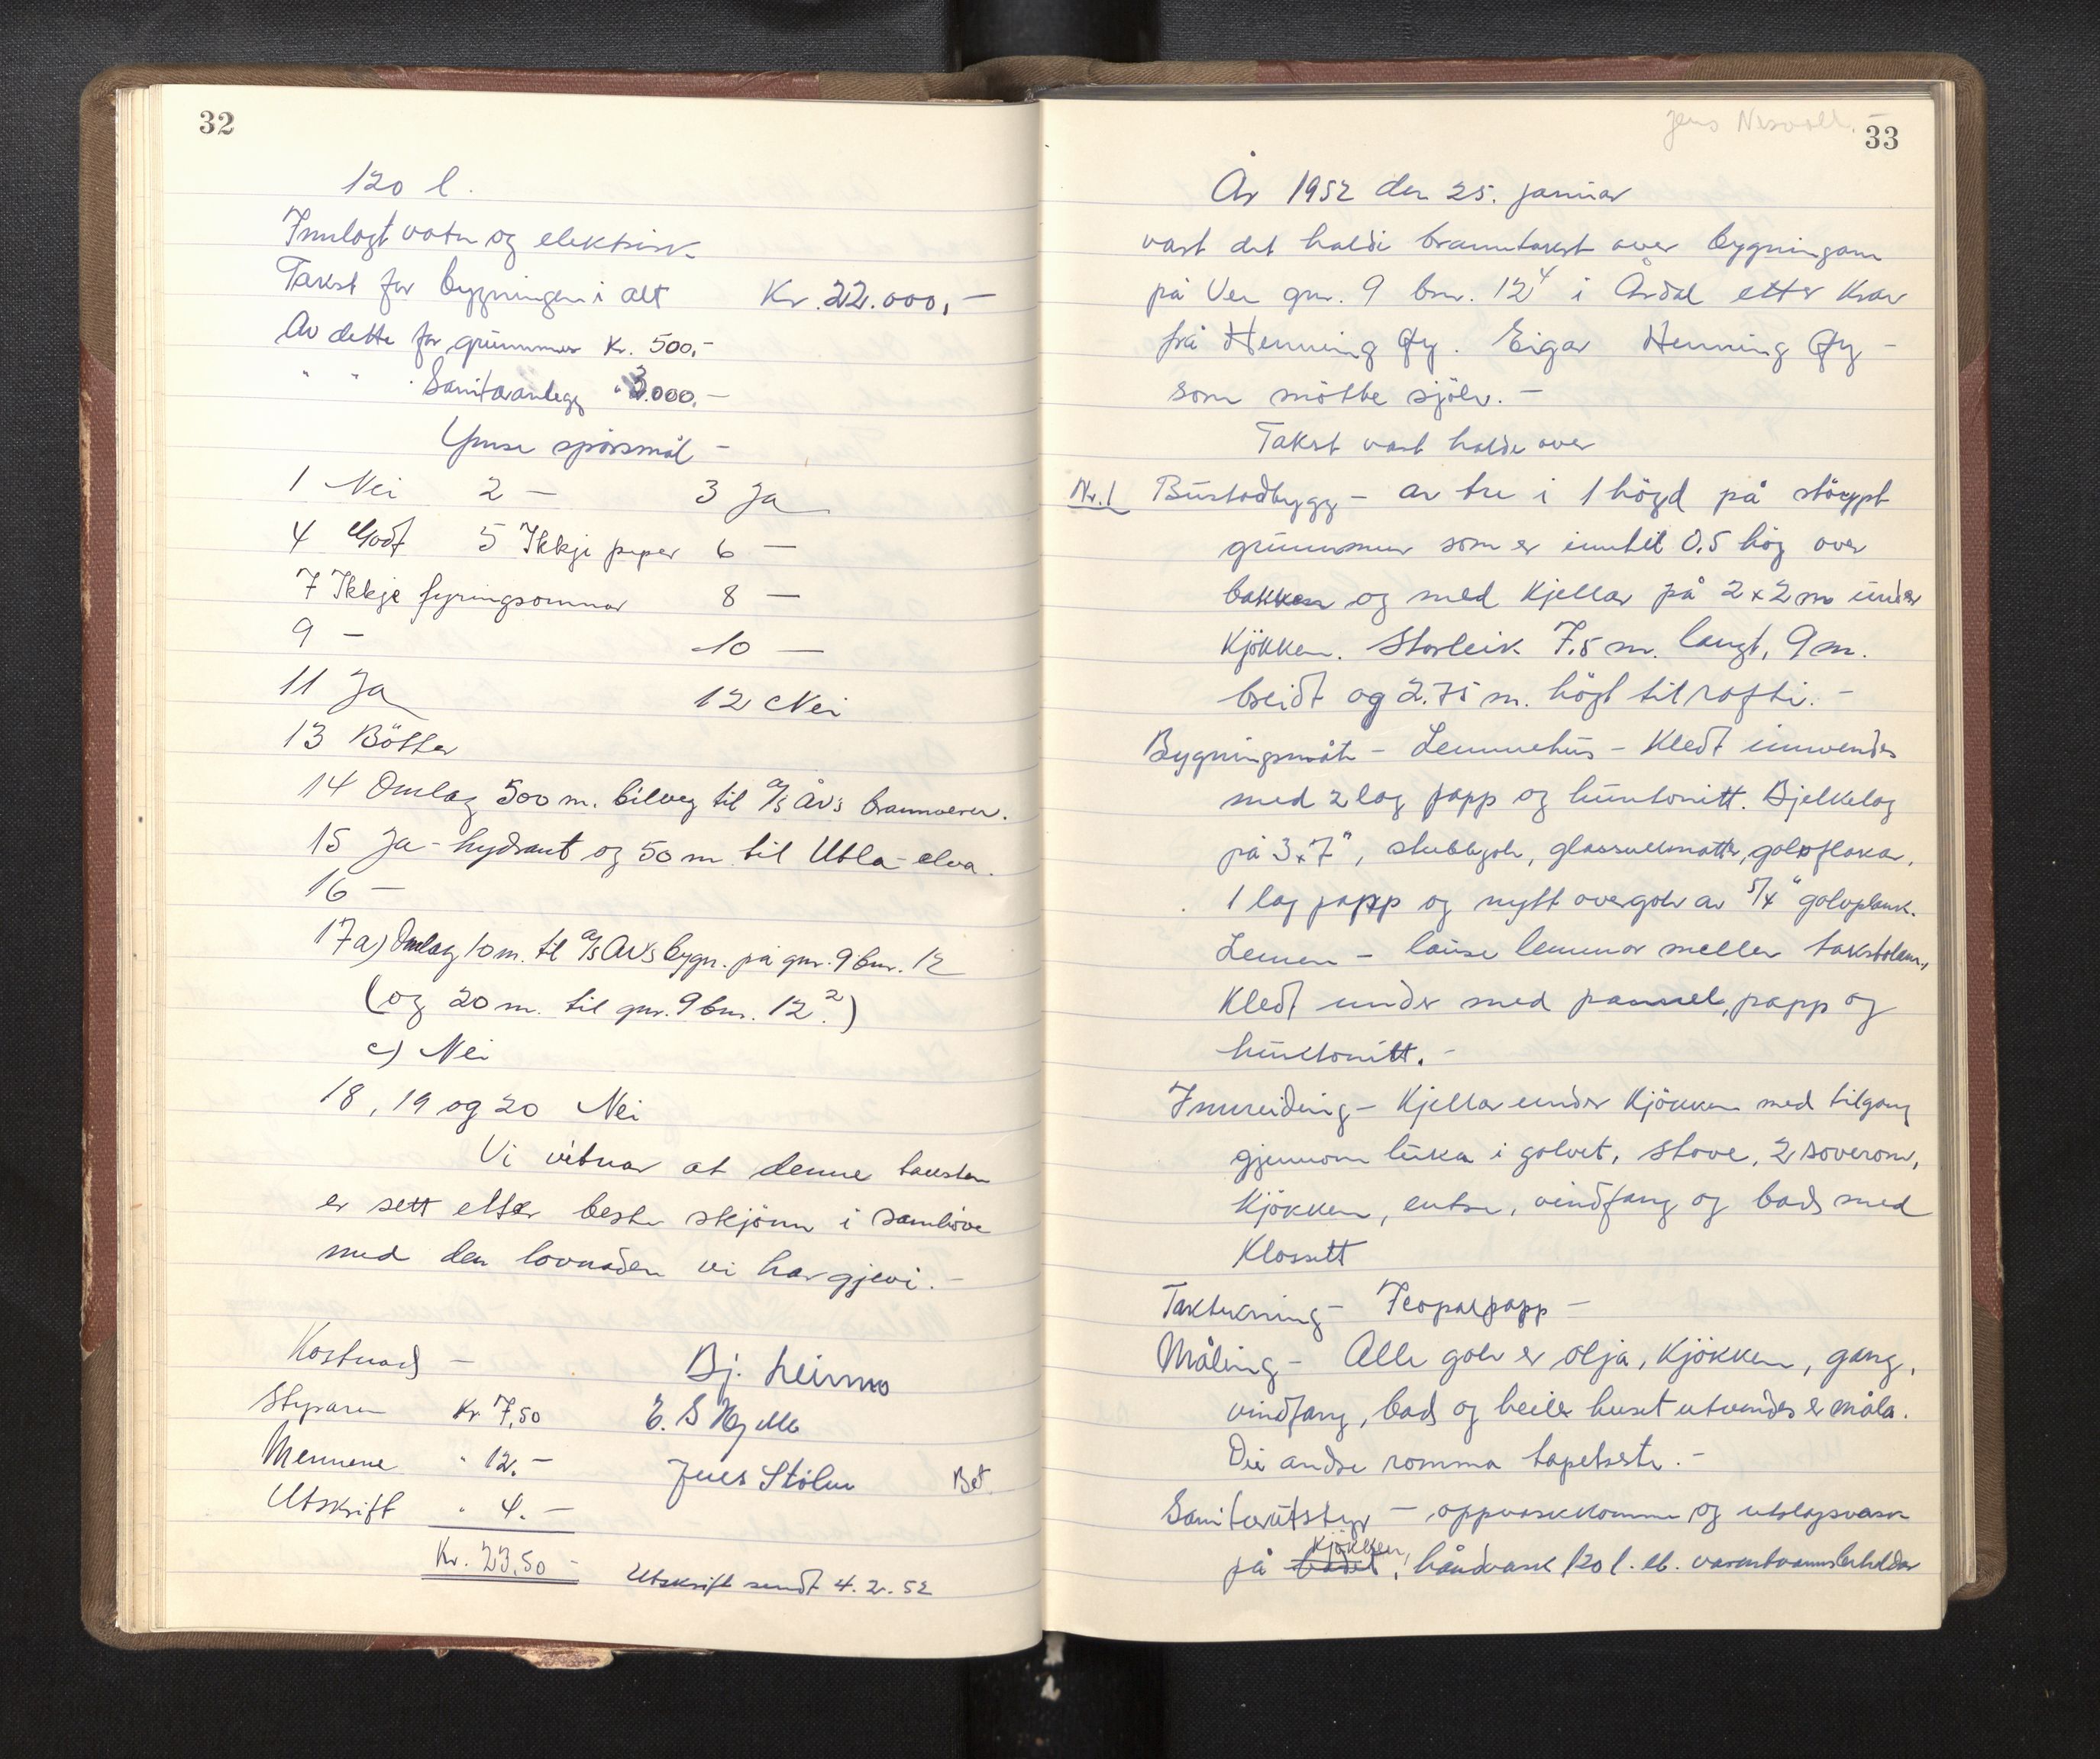 32
120 l.
Innlagt vatn og elektrisk
Takst for bygningen i alt Kr. 22.000,-
Av dette for grunnmur Kr. 500,-
" " " Sanitæranlegg " 3.000.-
Ymse spörsmål -
1 Nei 2 - 3 Ja
4 Godt 5 Ikkje piper 6 -
7 Ikkje fyringsomnar 8 -
9 - 10 -
11 Ja 12 Nei
13 Bötter
14 Omlag 500 m. bilveg til a/s ÅVs brannvern.
15 Ja - hydrant og 50 m til Utla-elva.
16 -
17a) Omlag 10 m. til a/s ÅVs bygn. på gnr. 9 bnr. 12
(og 20 m. til gnr. 9 bnr. 12²)
c) Nei
18, 19 og 20 Nei
Vi vitnar at denne taksten
er sett etter beste skjönn i samhöve
med den lovnaden vi har gjevi. -
Kostnad -
Bj. Leirmo
Styraren Kr 7,50 E. S Hjelle
Mennene " 12.- Jens Stölen Bet.
Utskrift " 4.-
Kr. 23,50 - Utskrift sendt 4.2.52
33
År 1952 den 25. januar
vart det haldi branntakst over bygningane
på Ve gnr. 9 bnr. 12⁴ i Årdal etter krav
frå Henning Øy. Eigar Henning Øy -
som mötte sjölv. -
Takst vart halde over
Nr. 1 Bustadbygg - av tre i 1 högd på stöypt
grunnmur som er inntil 0,5 hög over
bakken og med kjellar på 2 x 2 m under
kjökken. Storleik 7,5 m. langt, 9 m.
breidt og 2.75 m. högt til rafti. -
Bygningsmåte - Lemmehus - kledt innvendes
med 2 lag papp og huntonitt. Bjelkelag
på 3 x 7", stubbgolv, glassvattmatter, golvflakar,
1 lag papp og nytt overgolv av 5/4" golvplank.
Lemen - lause lemmar mellom takstolane,
kledt under med pannel, papp og
huntonitt. -
Innreiding - Kjellar under kjökken med tilgang
gjennom luka i golvet, stove, 2 soverom,
kjökken, entre, vindfang og bad med
klosett
Taktekning - Icopalpapp -
Måling - Alle golv er olja, kjökken, gang,
vindfang, bad og heile huset utvendes er måla.
Dei andre romma tapetserte. -
Sanitærutstyr - oppvaskkomme og utslagsvask
på badet kjökken, håndvask 120 l. el. varmtvannsbeholdar